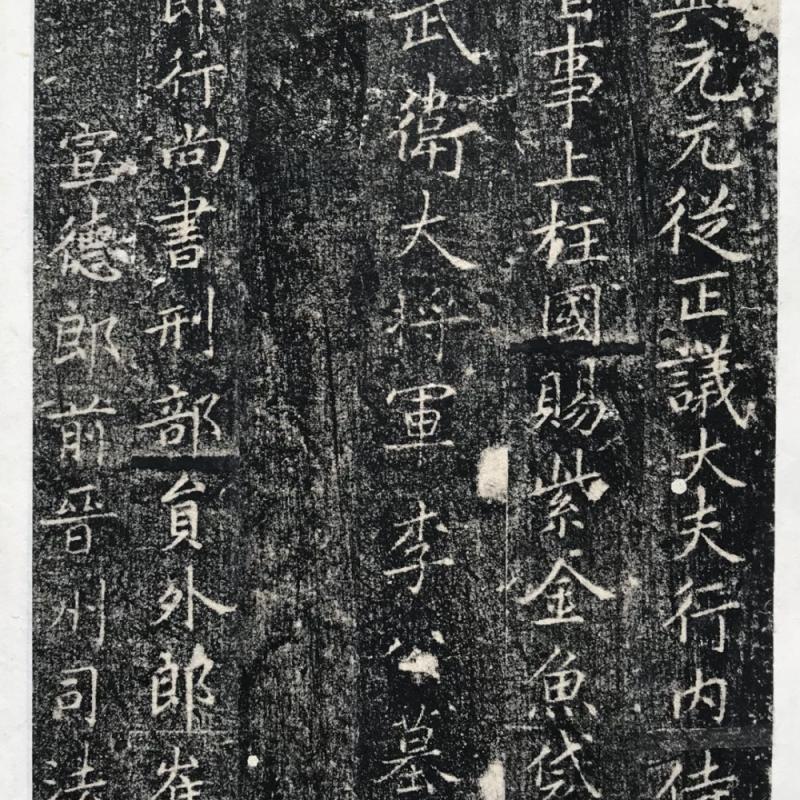 元元從正議大夫行内侍
事上柱國賜紫金魚袋
武衛大将軍李公墓
郎行尚書刑部員外郎崔
宣德郎前晉州司法